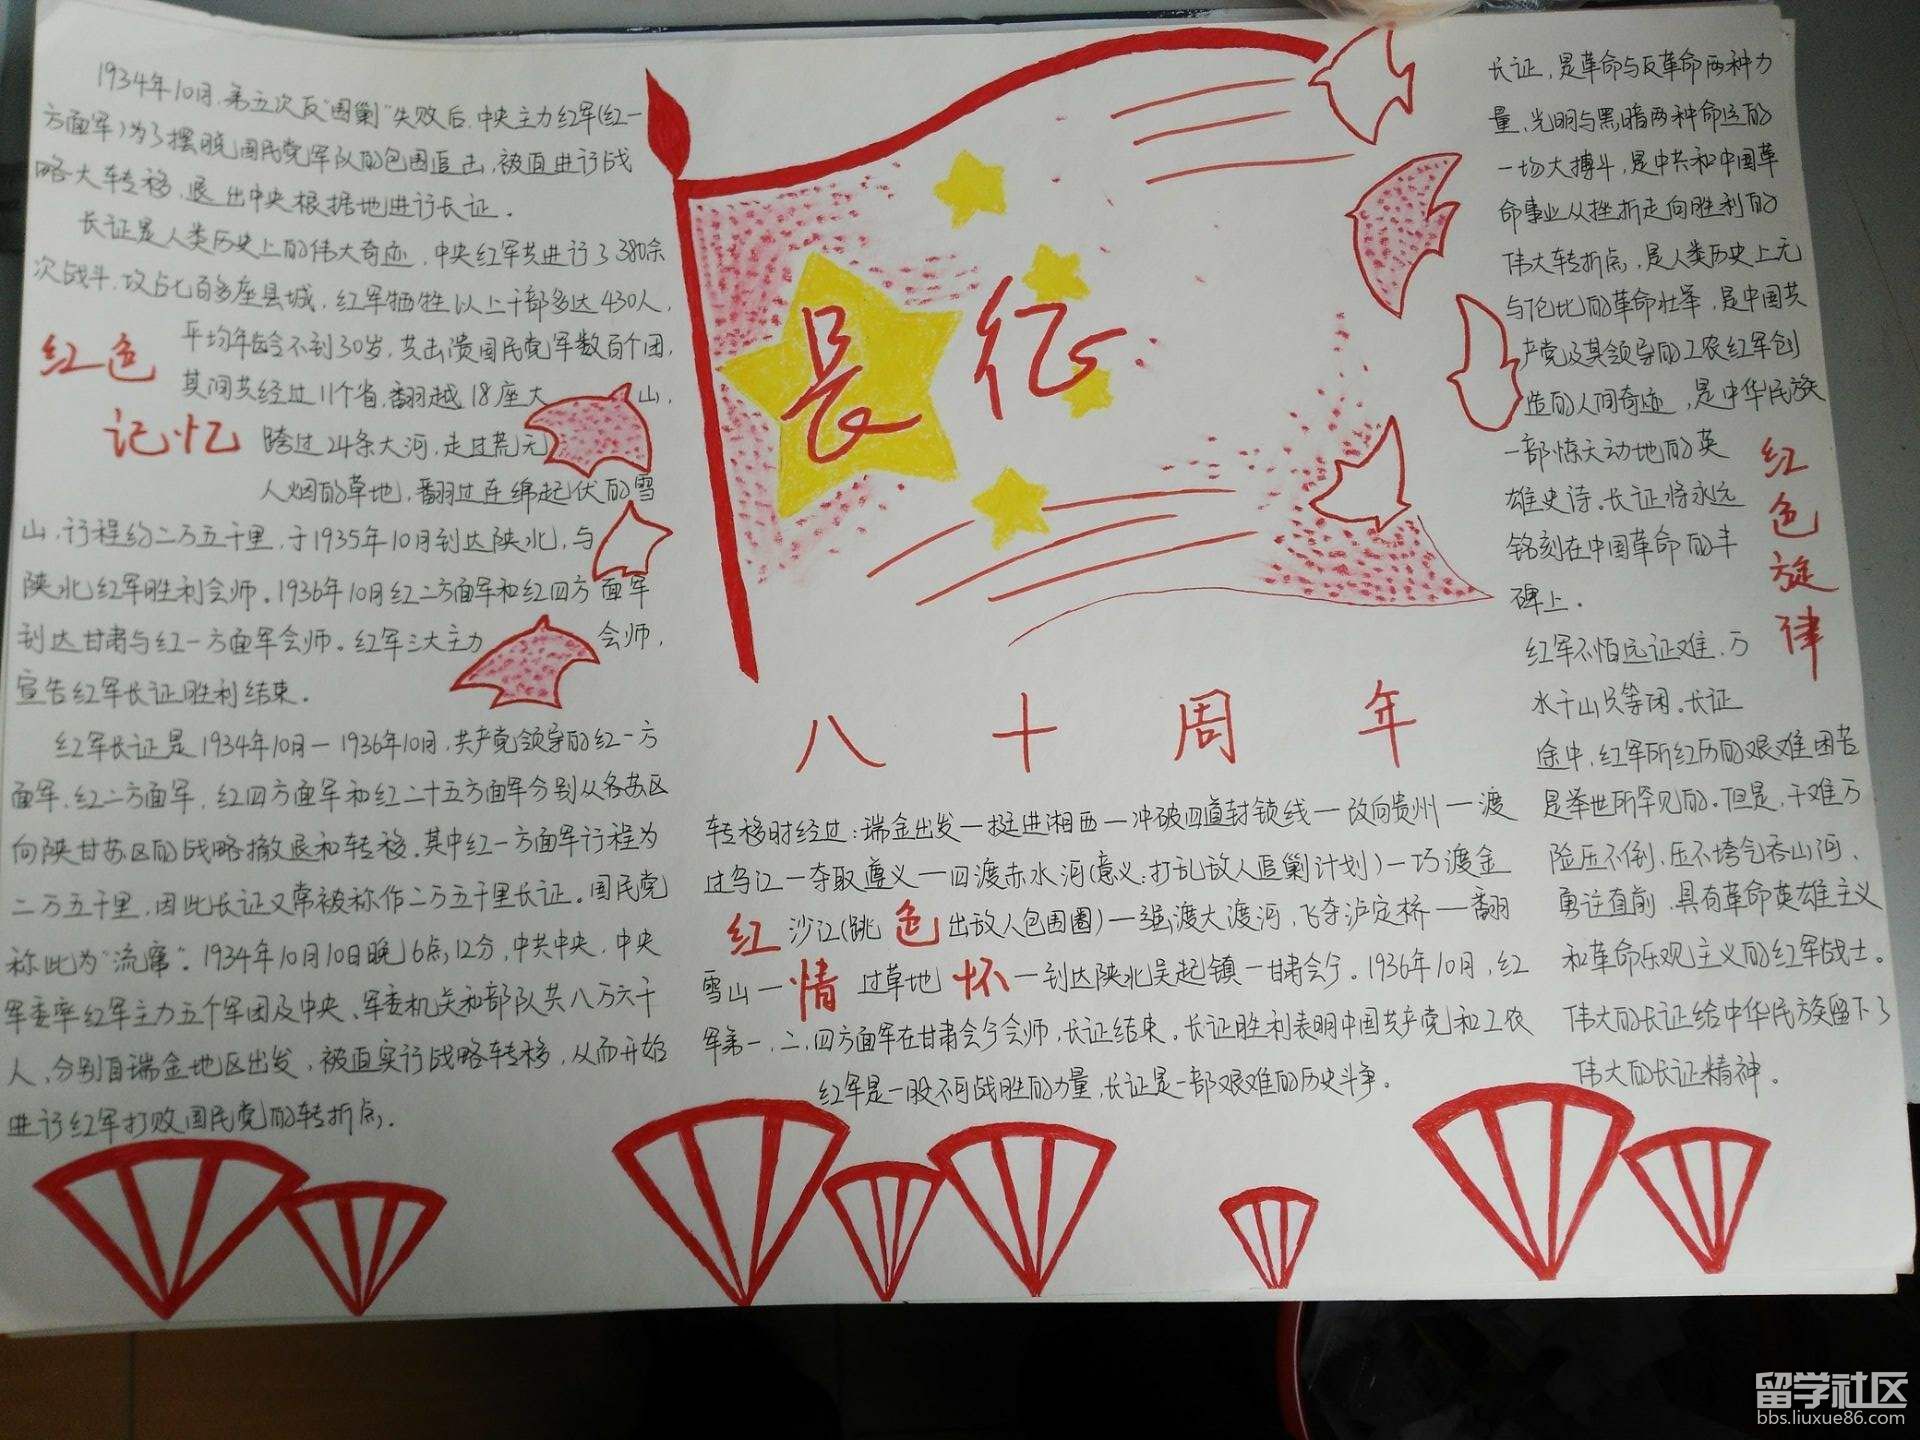 1934年10月,第五次反"围剿"失败后,中央主力红军(红一
方面军)为了摆脱国民党军队的包围追击,被迫进行战
略大转移,退出中央根据地进行长征.
长征是人类历史上的伟大奇迹,中央红军共进行了380余
次战斗,攻占七百多座县城,红军牺牲以上干部多达430人,
平均年龄不到30岁,共击溃国民党军数百个团,
其间共经过11个省,翻越18座大山,
跨过24条大河,走过荒无
人烟的草地,翻过连绵起伏的雪
山,行程约二万五千里,于1935年10月到达陕北,与
陕北红军胜利会师.1936年10月红二方面军和红四方面军
到达甘肃与红一方面军会师.红军三大主力会师,
宣告红军长征胜利结束.
红军长征是1934年10月一1936年10月,共产党领导的红一方
面军,红二方面军,红四方面军和红二十五方面军分别从各苏区
向陕甘苏区的战略撤退和转移.其中红一方面军行程为
二万五千里,因此长征又常被称作二万五千里长征.国民党
称此为"流窜".1934年10月10日晚6点12分,中共中央.中央
军委率红军主力五个军团及中央、军委机关和部队共八万六千
人,分别自瑞金地区出发,被迫实行战略转移,从而开始
进行红军打败国民党的转折点,
红色
记忆
长征
八十周年
转移时经过:瑞金出发一挺进湘西一冲破四道封锁线一改向贵州一渡
过乌江一夺取遵义一四渡赤水河(意义:打乱敌人追剿计划)一巧渡金
沙江(跳出敌人包围圈)一强渡大渡河,飞夺泸定桥一翻
雪山一过草地一到达陕北吴起镇一甘肃会宁.1936年10月,红
军第一,二,四方面军在甘肃会宁会师,长征结束.长征胜利表明中国共产党和工农
红军是一股不可战胜的力量,长征是一部艰难的历史斗争.
红色
情怀
长征,是革命与反革命两种力
量,光明与黑暗两种命运的
一场大搏斗,是中共和中国革
命事业从挫折走向胜利的
伟大转折点,是人类历史上无
与伦比的革命壮举,是中国共
产党及其领导的工农红军创
造的人间奇迹,是中华民族
一部惊天动地的英
雄史诗.长征将永远
铭刻在中国革命的丰
碑上.
红军不怕远征难,万
水千山只等闲.长征
途中,红军所红历的艰难困苦
是举世所罕见的.但是,千难万
险压不倒,压不垮气吞山河、
勇往直前,具有革命英雄主义
和革命乐观主义的红军战士.
伟大的长征给中华民族留下了
伟大的长征精神.
红色旋律
留学社区
bbs.liuxue86.com